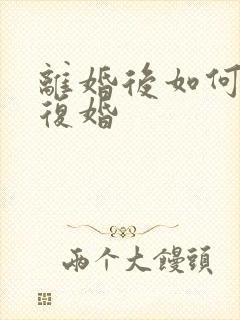 離婚後如何
復婚
兩个大饅頭